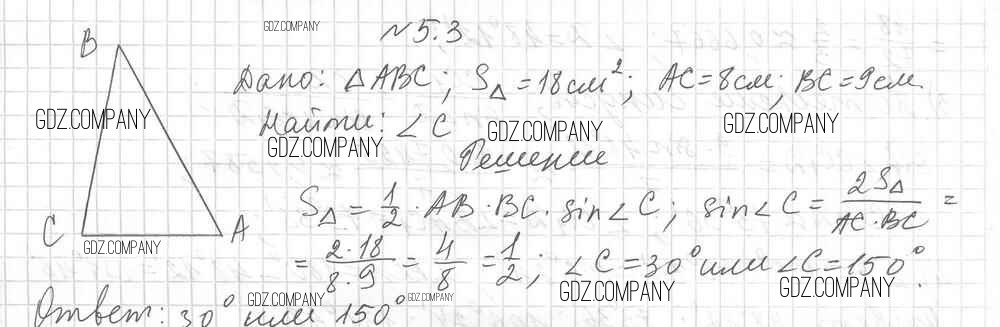 GDZ.COMPANY
№5.3
B
Дано: △ABC; S△ = 18см²; AC = 8см; BC = 9см.
GDZ.COMPANY
Найти: ∠C
GDZ.COMPANY
GDZ.COMPANY
GDZ.COMPANY
Решение
S△ = 1/2 · AB · BC · sin∠C; sin∠C = 2S△/AC·BC =
C
A
GDZ.COMPANY
= 2·18/8·9 = 4/8 = 1/2; ∠C = 30° или ∠C = 150°.
GDZ.COMPANY
GDZ.COMPANY
GDZ.COMPANY
GDZ.COMPANY
Ответ: 30° или 150°